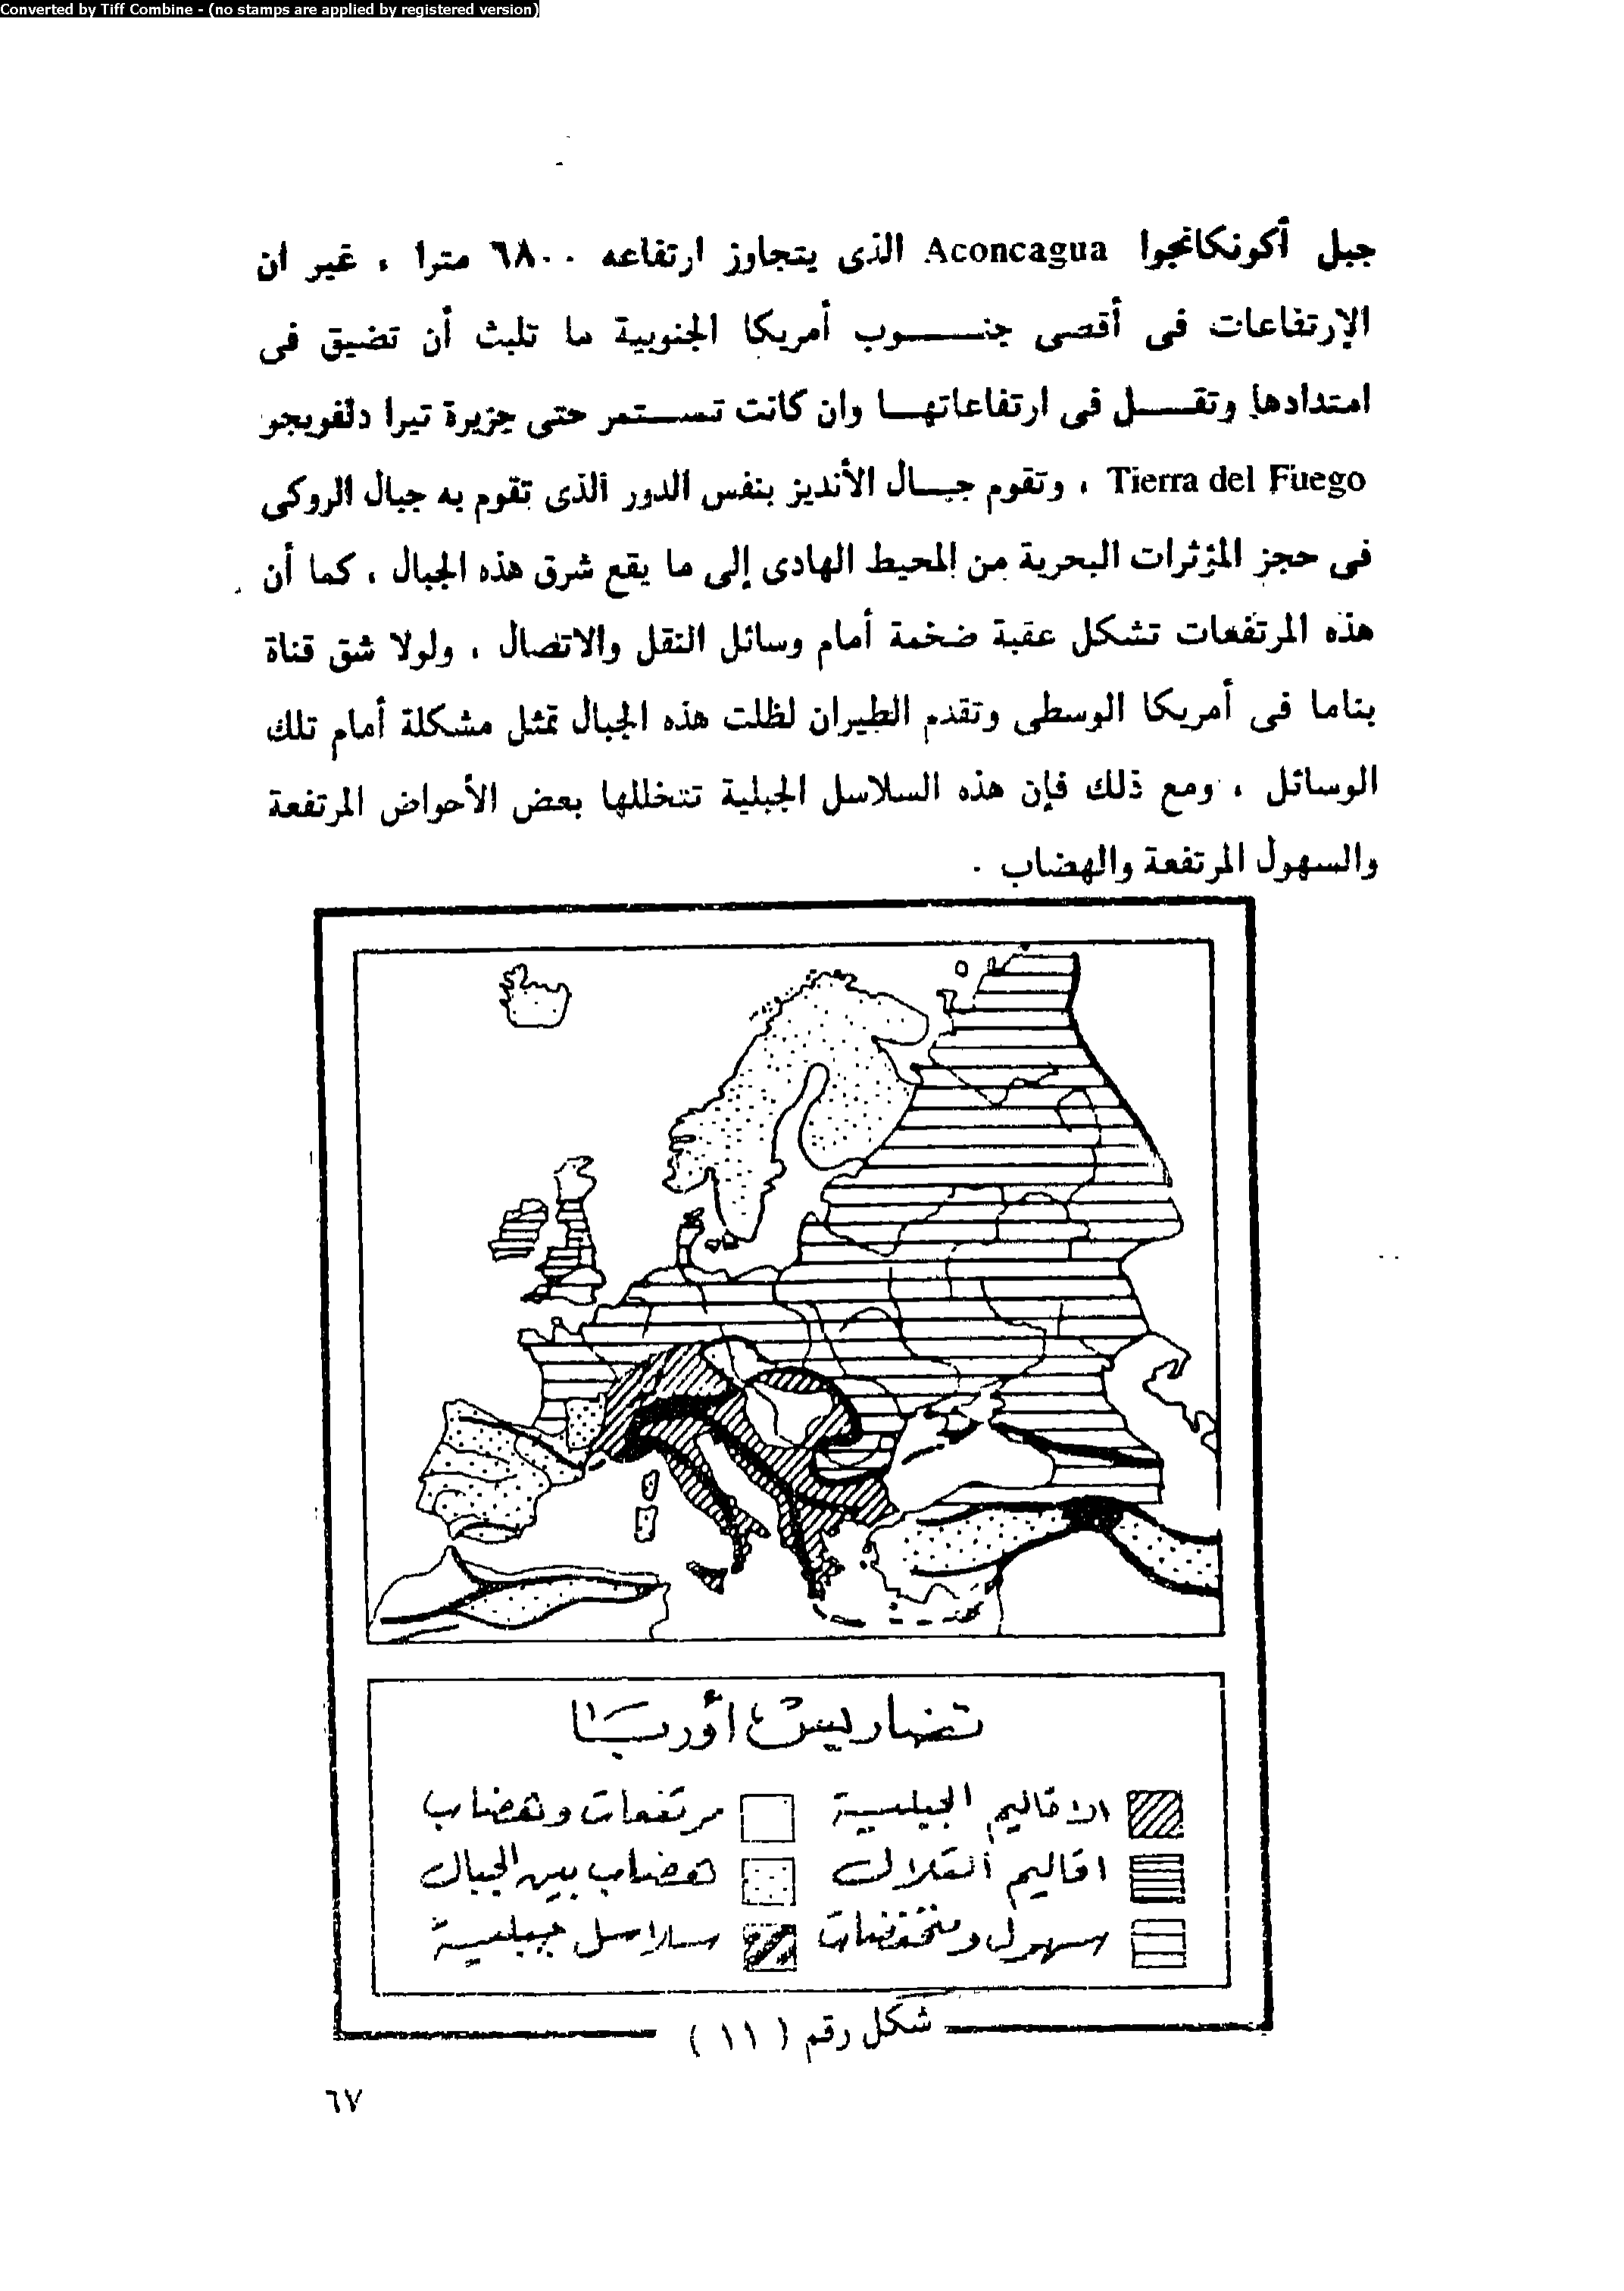 Converted by Tiff Combine - (no stamps are applied by registered version)
جبل أكونكانجوا Aconcagua الذى يتجاوز ارتفاعه ٦٨٠٠ مترا ، غير ان
الإرتفاعات فى أقصى جنوب أمريكا الجنوبية ما تلبث أن تضيق فى
امتدادها وتقل فى ارتفاعاتها وان كانت تستمر حتى جزيرة تيرا دلفويجو
Tierra del Fuego ، وتقوم جبال الأنديز بنفس الدور الذى تقوم به جبال الروكى
فى حجز المؤثرات البحرية من المحيط الهادى إلى ما يقع شرق هذه الجبال ، كما أن
هذه المرتفعات تشكل عقبة ضخمة أمام وسائل النقل والاتصال ، ولولا شق قناة
بناما فى أمريكا الوسطى وتقدم الطيران لظلت هذه الجبال تمثل مشكلة أمام تلك
الوسائل ، ومع ذلك فإن هذه السلاسل الجبلية تتخللها بعض الأحواض المرتفعة
والسهول المرتفعة والهضاب .
تضاريس أوربا
الاقاليم الجبلية
مرتفعات وهضاب
اقاليم التلال
هضاب بين الجبال
سهول ومنخفضات
سلاسل جبلية
شكل رقم ( ١١ )
٦٧